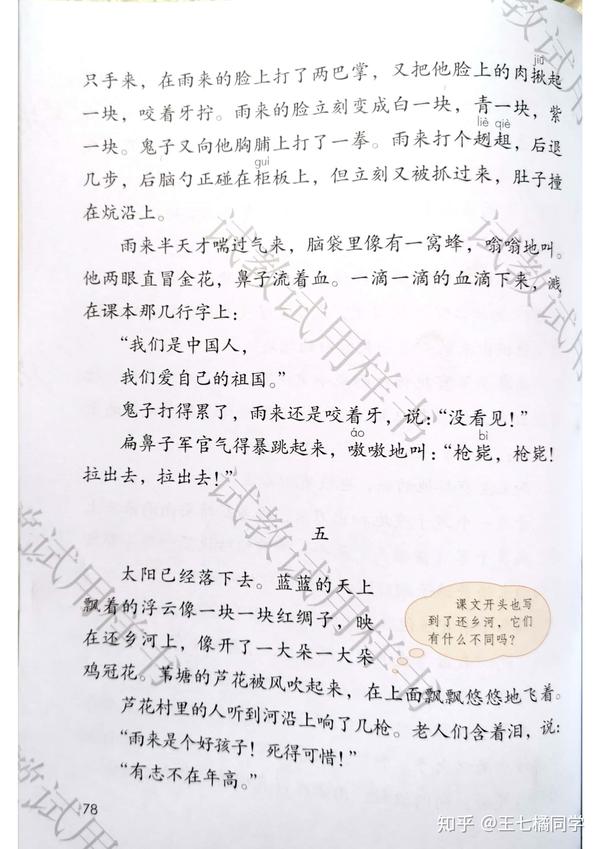 jiū
只手来，在雨来的脸上打了两巴掌，又把他脸上的肉揪起
一块，咬着牙拧。雨来的脸立刻变成白一块，青一块，紫
liè qiè
一块。鬼子又向他胸脯上打了一拳。雨来打个趔趄，后退
guì
几步，后脑勺正碰在柜板上，但立刻又被抓过来，肚子撞
在炕沿上。
雨来半天才喘过气来，脑袋里像有一窝蜂，嗡嗡地叫。
他两眼直冒金花，鼻子流着血。一滴一滴的血滴下来，溅
在课本那几行字上：
“我们是中国人，
我们爱自己的祖国。”
鬼子打得累了，雨来还是咬着牙，说：“没看见！”
áo bì
扁鼻子军官气得暴跳起来，嗷嗷地叫：“枪毙，枪毙！
拉出去，拉出去！”
五
太阳已经落下去。蓝蓝的天上
飘着的浮云像一块一块红绸子，映
在还乡河上，像开了一大朵一大朵
鸡冠花。苇塘的芦花被风吹起来，在上面飘飘悠悠地飞着。
课文开头也写
到了还乡河，它们
有什么不同吗？
芦花村里的人听到河沿上响了几枪。老人们含着泪，说：
“雨来是个好孩子！死得可惜！”
“有志不在年高。”
78
知乎 @王七橘同学
试教试用样书
试教试用样书
试教试用样书
试教试用样书